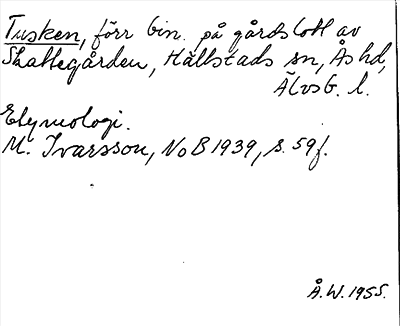 Tusken, förr bin. på gårdslott av
Skattegården, Hällstads sn, Ås hd,
Älvsb. l.
Etymologi.
M. Ivarsson, NoB 1939, s. 59f.
Å.W. 1955.